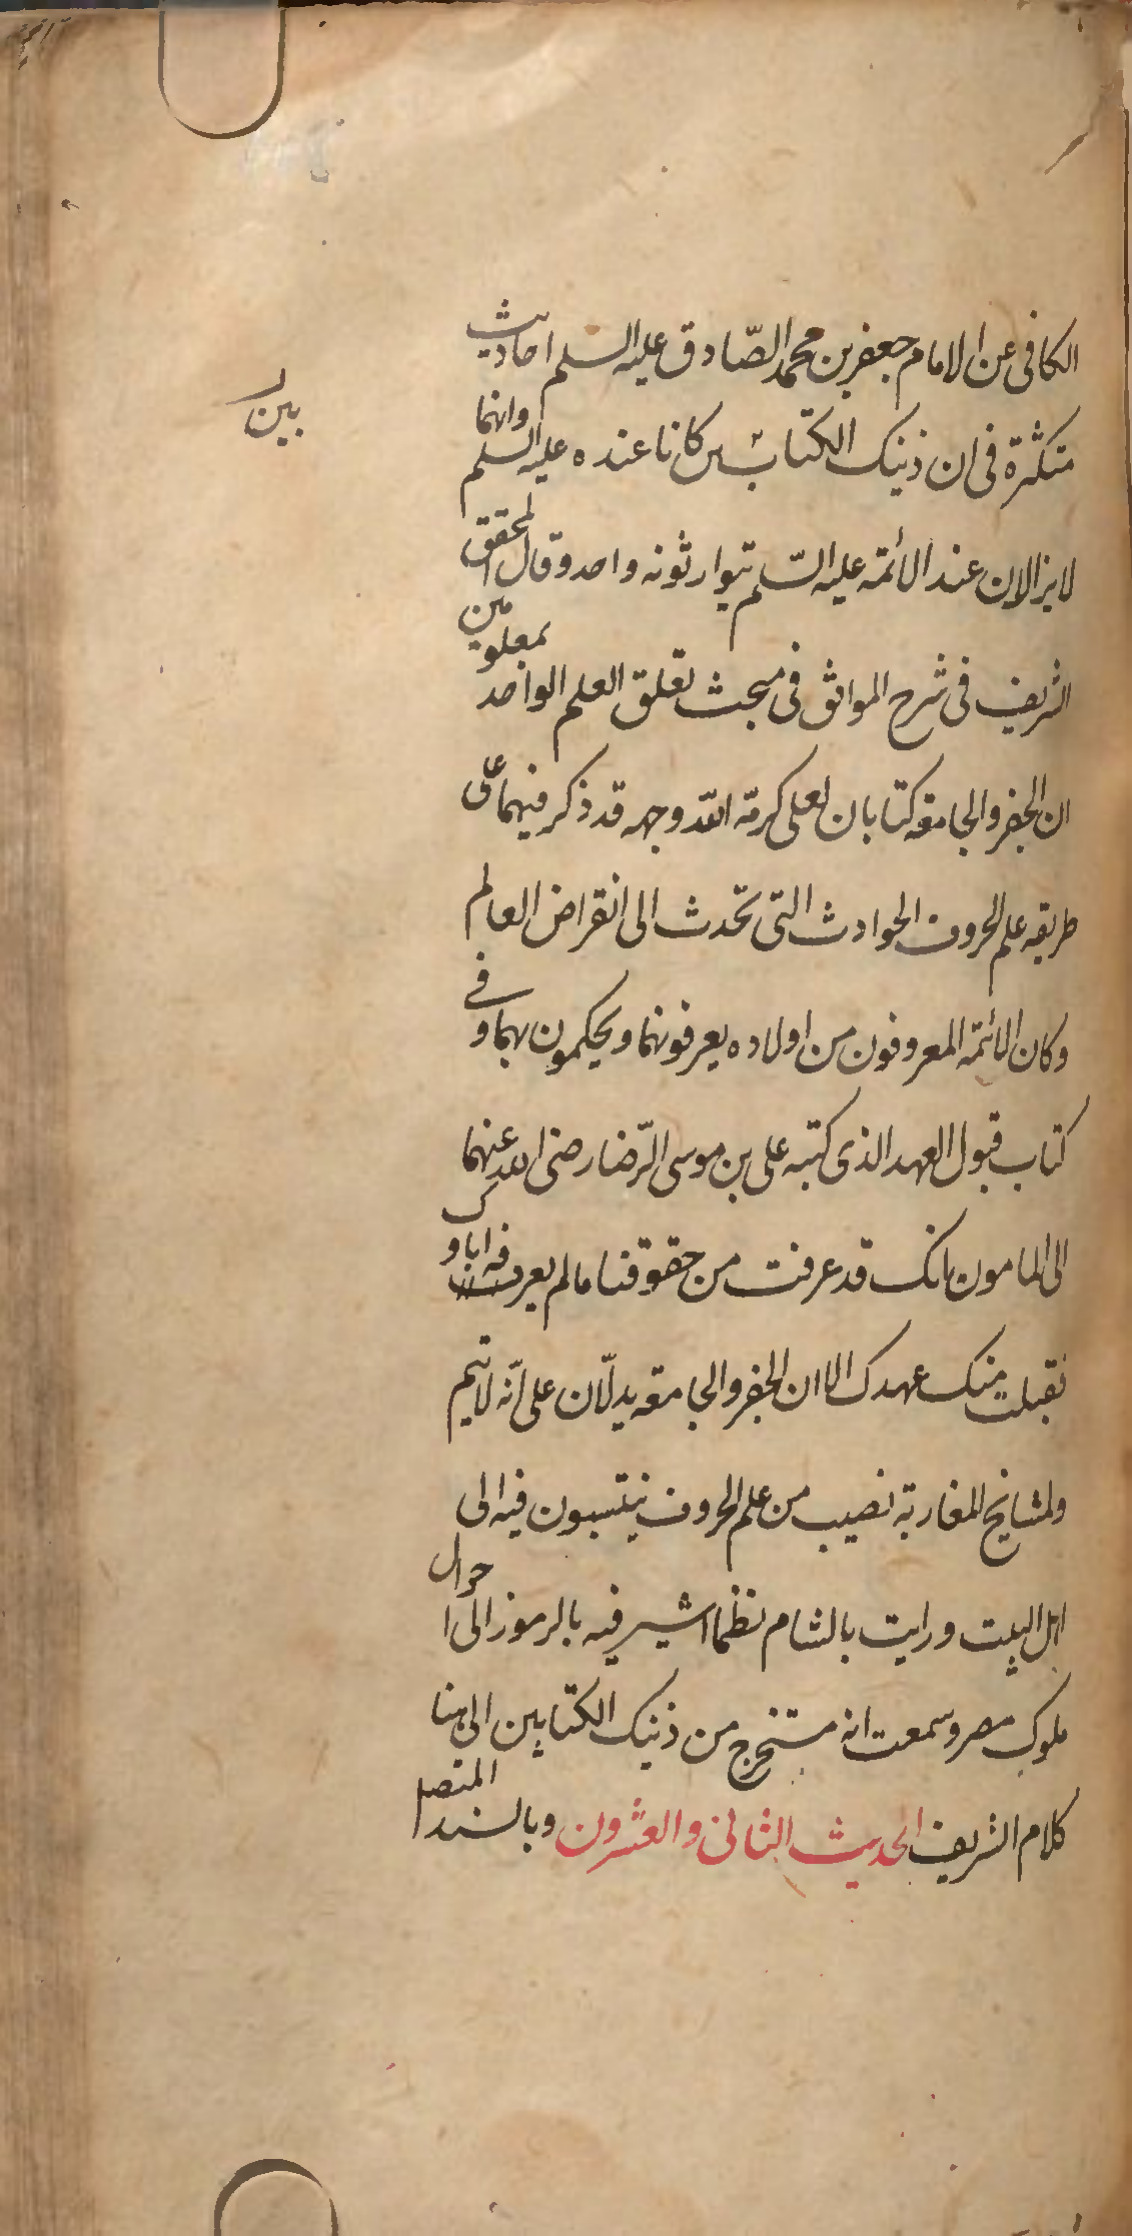 الكافى عن الامام جعفر بن محمد الصّادق عليه السلم احاديث
متكثرة فى ان ذينك الكتابين كانا عنده عليه السلم وانهما
بين
لا يزالان عند الائمّة عليه السّلم يتوارثونه واحد وقال المحقق
الشريف فى شرح المواقف فى مبحث تعلق العلم الواحد بمعلومين
ان الجفر والجامعة كتابان لعلى كرمّ اللّه وجهه قد ذكر فيهما على
طريقه علم الحروف الحوادث التى تحدث الى انقراض العالم
وكان الائمّة المعروفون من اولاده يعرفونهما ويحكمون بهما وفى
كتاب قبول العهد الذى كتبه على بن موسى الرّضا رضى الله عنهما
الى المامون بانك قد عرفت من حقوقنا ما لم يعرفه اباوك
فقبلت منك عهدك الا ان الجفر والجامعة يدلّان على انّه لا يتم
ولمشايخ المغاربة نصيب من علم الحروف ينتسبون فيه الى
اهل البيت ورايت بالشام نظما اشير فيه بالرموز الى احوال
ملوك مصر وسمعت انه مستخرج من ذينك الكتابين الى هنا
كلام الشريف الحديث الثانى والعشرون وبالسند المتصل